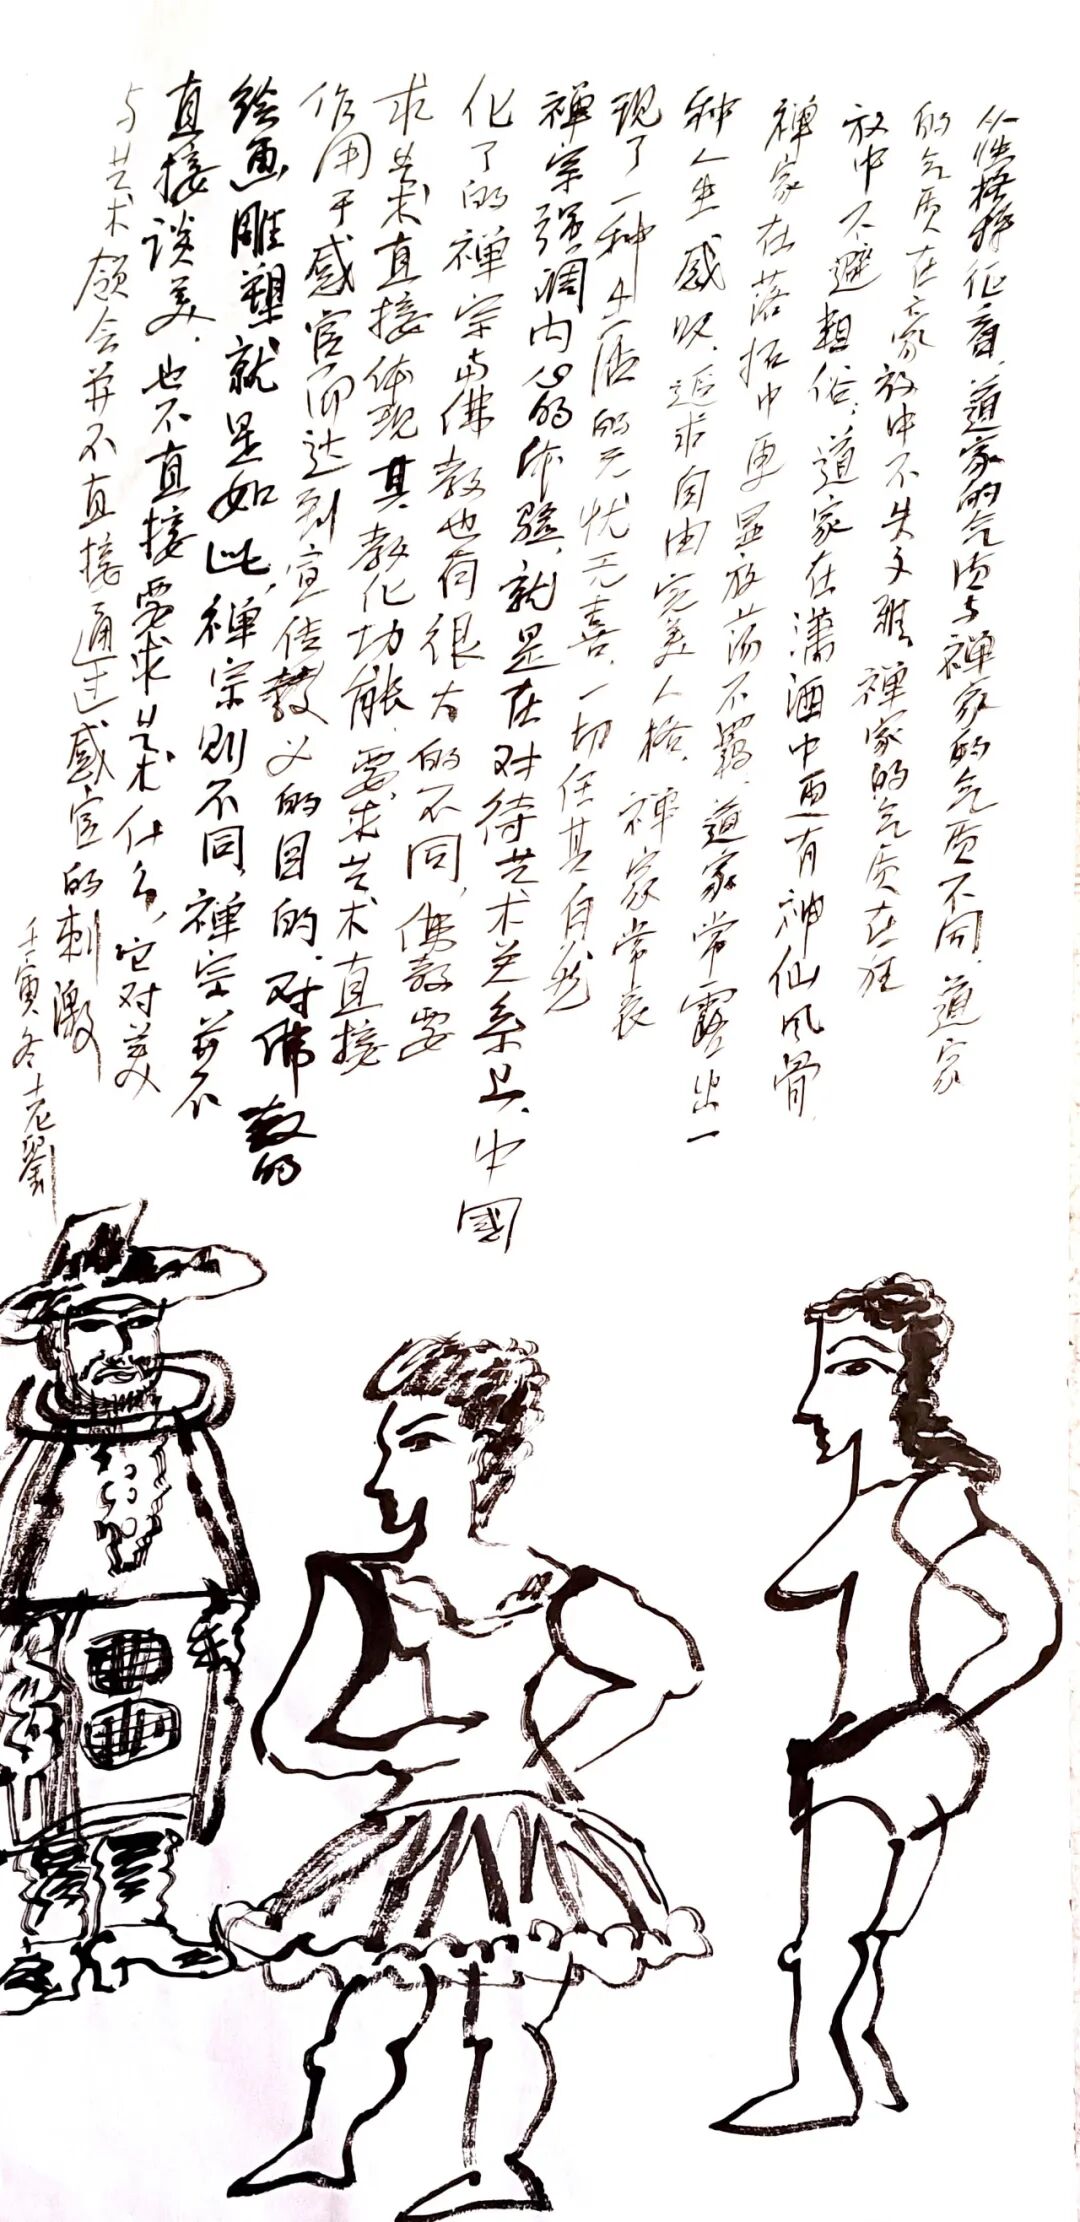 从性格特征看,道家的气质与禅家的气质不同,道家
的气质在豪放中不失文雅,禅家的气质在狂
放中不避粗俗;道家在潇洒中更有神仙风骨,
禅家在落拓中更显放荡不羁,道家常露出一
种人生感叹,追求自由完美人格,禅家常表
现了一种生活的无忧无喜,一切任其自然
禅宗强调内心的体验,就是在对待艺术关系上,中國
化了的禅宗与佛教也有很大的不同,佛教要
求艺术直接体现其教化功能,要求艺术直接
作用于感官而达到宣传教义的目的,对佛教的
绘画雕塑就是如此,禅宗则不同,禅宗并不
直接谈美,也不直接要求艺术什么,它对美
与艺术领会并不直接通过感官的刺激
壬寅冬老劉